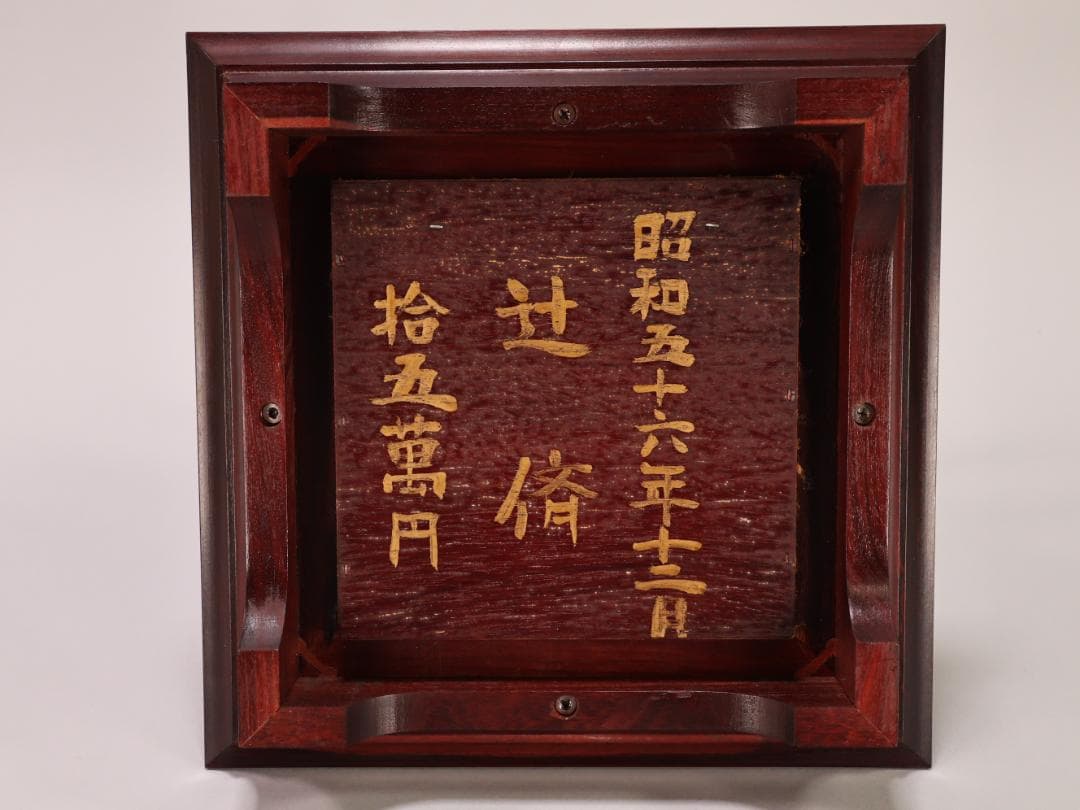 昭和五十六年十二月
辻脩
拾五萬円